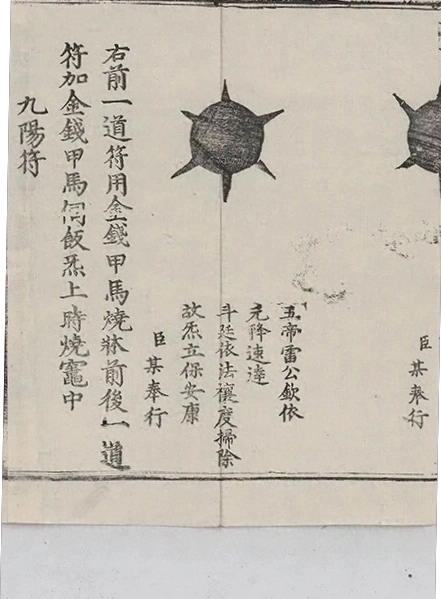 臣某奉行
五帝雷公欽依
元降速達
斗廷依法禳度掃除
故炁立保安康
臣某奉行
右前一道符用金錢甲馬燒牀前後一道
符加金錢甲馬伺飯炁上時燒竈中
九陽符